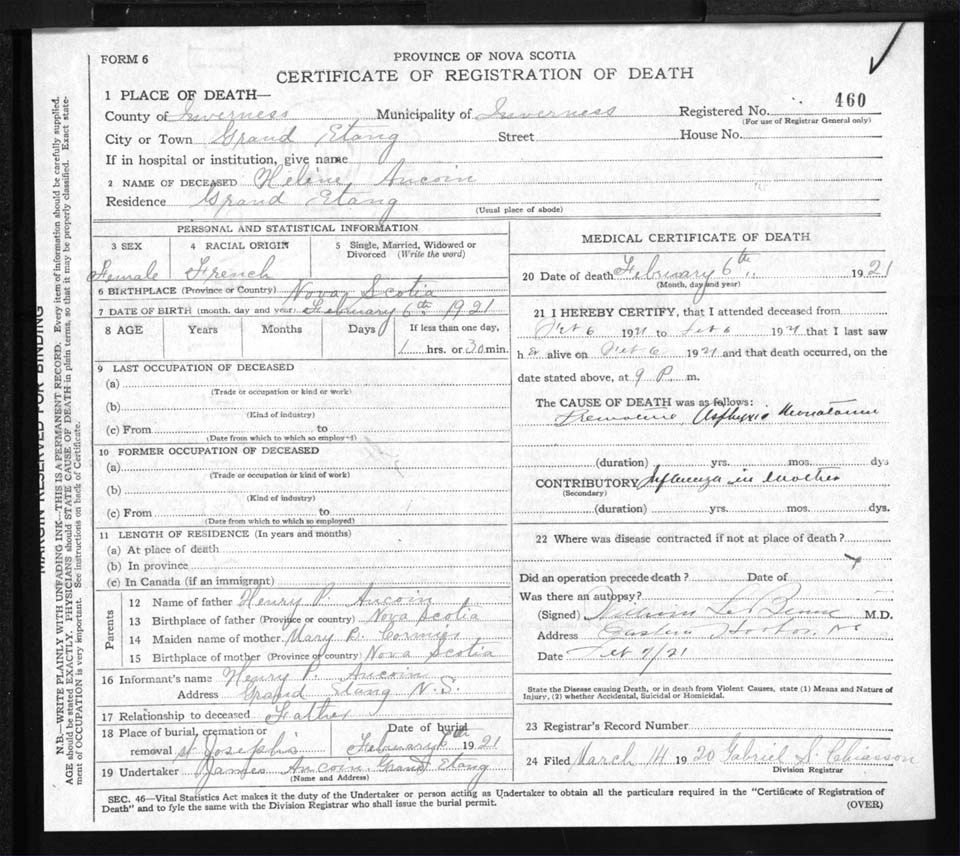 FORM 6
PROVINCE OF NOVA SCOTIA
CERTIFICATE OF REGISTRATION OF DEATH
1 PLACE OF DEATH—
County of Inverness Municipality of Inverness Registered No. 460
(For use of Registrar General only)
City or Town Grand Etang Street House No.
If in hospital or institution, give name
2 NAME OF DECEASED Helene Aucoin
Residence Grand Etang
(Usual place of abode)
PERSONAL AND STATISTICAL INFORMATION
3 SEX 4 RACIAL ORIGIN 5 Single, Married, Widowed or Divorced (Write the word)
Female French
6 BIRTHPLACE (Province or Country) Nova Scotia
7 DATE OF BIRTH (month, day and year) February 6th 1921
8 AGE Years Months Days If less than one day,
1 hrs. or 30 min.
9 LAST OCCUPATION OF DECEASED
(a)
(Trade or occupation or kind or work)
(b)
(Kind of industry)
(c) From to
(Date from which to which so employed)
10 FORMER OCCUPATION OF DECEASED
(a)
(Trade or occupation or kind of work)
(b)
(Kind of industry)
(c) From to
(Date from which to which so employed)
11 LENGTH OF RESIDENCE (In years and months)
(a) At place of death
(b) In province
(c) In Canada (if an immigrant)
Parents
12 Name of father Henry P. Aucoin
13 Birthplace of father (Province or country) Nova Scotia
14 Maiden name of mother Mary B. Cormier
15 Birthplace of mother (Province or country) Nova Scotia
16 Informant's name Henry P. Aucoin
Address Grand Etang N.S.
17 Relationship to deceased Father
18 Place of burial, cremation or removal St Joseph's Date of burial February 8th 1921
19 Undertaker James Aucoin Grand Etang
(Name and Address)
MEDICAL CERTIFICATE OF DEATH
20 Date of death February 6th 1921
(Month, day and year)
21 I HEREBY CERTIFY, that I attended deceased from
Feb 6 1921 to Feb 6 1921 that I last saw
h er alive on Feb 6 1921 and that death occurred, on the
date stated above, at 9 P. m.
The CAUSE OF DEATH was as follows:
Asphyxia Neonatorum
(duration) yrs. mos. dys
CONTRIBUTORY Influenza in Mother
(Secondary)
(duration) yrs. mos. dys.
22 Where was disease contracted if not at place of death?
Did an operation precede death? Date of
Was there an autopsy?
(Signed) M.D.
Address Eastern Harbor, NS
Date Feb 7/21
State the Disease causing Death, or in death from Violent Causes, state (1) Means and Nature of
Injury, (2) whether Accidental, Suicidal or Homicidal.
23 Registrar's Record Number
24 Filed March 14 1920 Gabriel S. Chiasson
Division Registrar
SEC. 46—Vital Statistics Act makes it the duty of the Undertaker or person acting as Undertaker to obtain all the particulars required in the "Certificate of Registration of
Death" and to fyle the same with the Division Registrar who shall issue the burial permit.
(OVER)
MARGIN RESERVED FOR BINDING
N.B.—WRITE PLAINLY WITH UNFADING INK—THIS IS A PERMANENT RECORD. Every item of information should be carefully supplied.
AGE should be stated EXACTLY. PHYSICIANS should STATE CAUSE OF DEATH in plain terms, so that it may be properly classified. Exact state-
ment of OCCUPATION is very important. See instructions on back of Certificate.